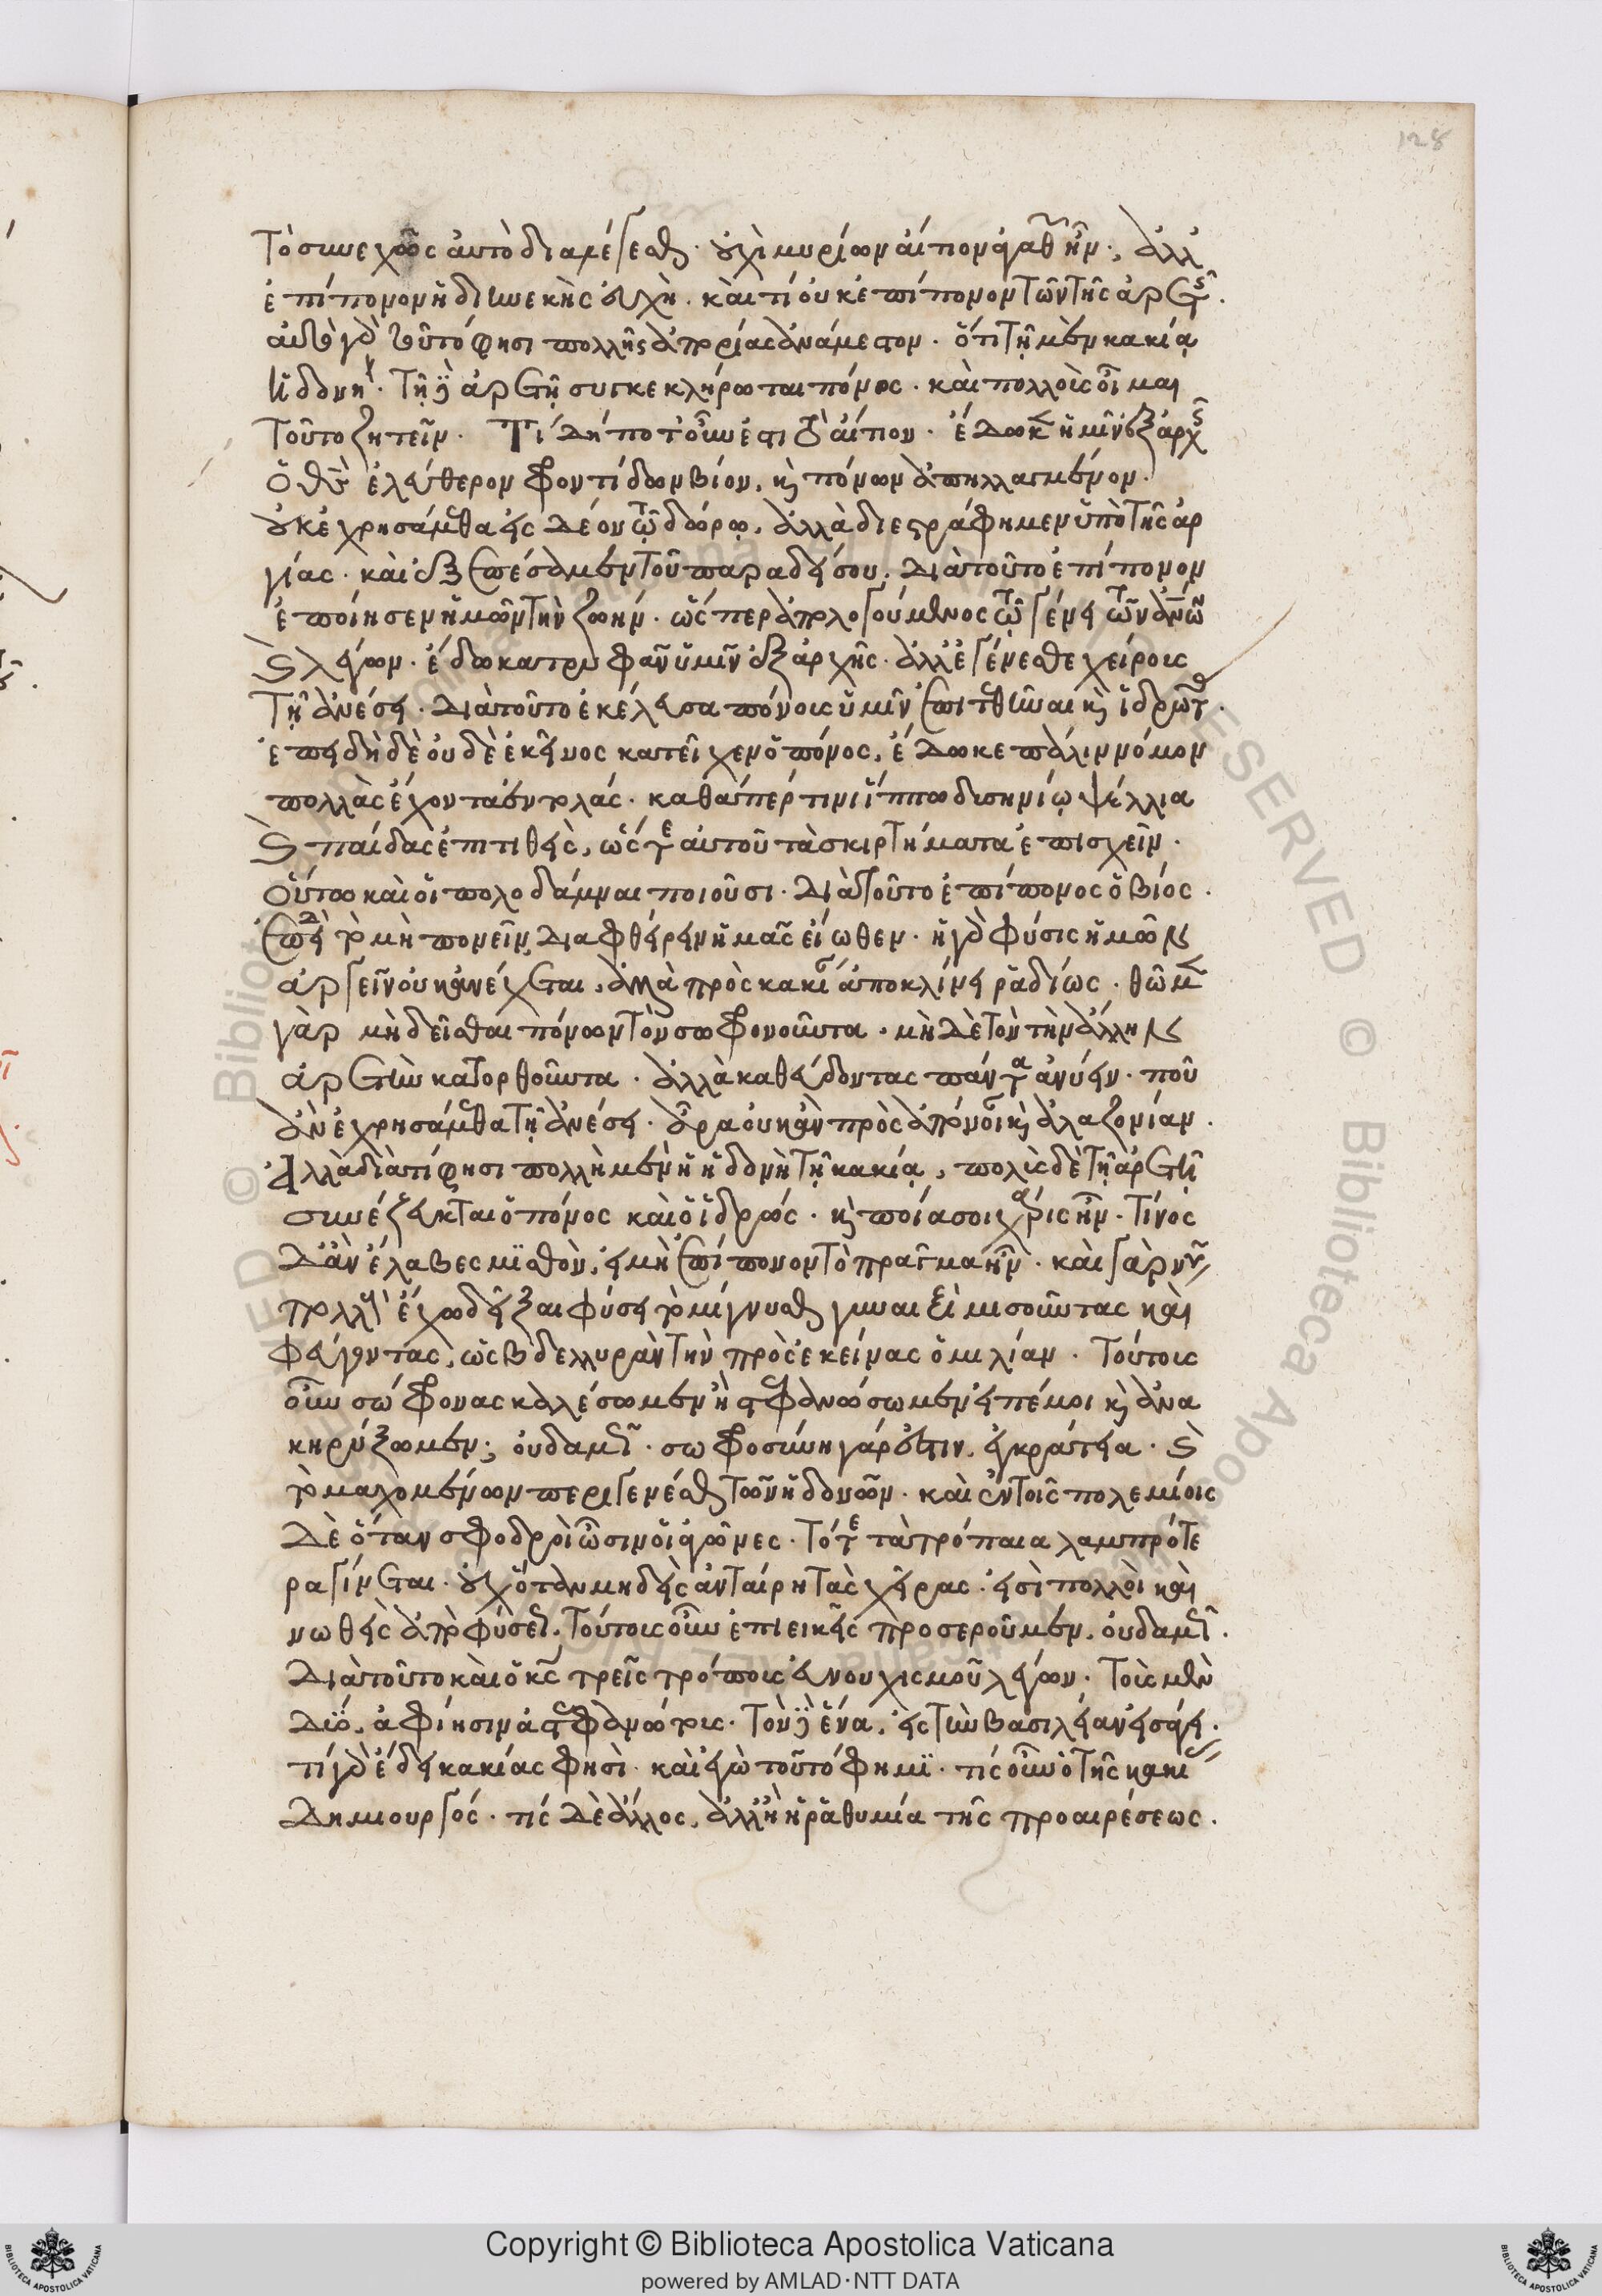 128
Τὸ συνεχῶς αὐτὸ διαλέγεσθαι. οὐχὶ μυρίων αἴτιον ἀγαθῶν ἦν; ἀλλ'
ἐπίπονον ἡ διηνεκὴς εὐχή. καὶ τί οὐκ ἐπίπονον τῶν τῆς ἀρετῆς.
φησι πολλῆς ἀπορίας ἀνάμεστον. ὅτι τῇ μὲν κακίᾳ
ἡδονή. τῇ δὲ ἀρετῇ συγκεκλήρωται πόνος. καὶ πολλοὺς οἶμαι
τοῦτο ζητεῖν. Τί δήποτ' οὖν ἐστι τὸ αἴτιον. ἔδωκεν ἡμῖν ἐξ ἀρχῆς
ὁ θεὸς ἐλεύθερον φροντίδων βίον, καὶ πόνων ἀπηλλαγμένον.
οὐκ ἐχρησάμεθα εἰς δέον τῷ δώρῳ, ἀλλὰ διεστράφημεν ὑπὸ τῆς ἀρ
γίας. καὶ ἐξεπέσαμεν τοῦ παραδείσου. Διὰ τοῦτο ἐπίπονον
ἐποίησεν ἡμῶν τὴν ζωήν. ὥσπερ ἀπολογούμενος τῷ γένει τῶν ἀνθρώπων
καὶ λέγων. ἔδωκα τρυφᾶν ὑμῖν ἐξ ἀρχῆς. ἀλλ' ἐγένεσθε χείρους
τῇ ἀνέσει. Διὰ τοῦτο ἐκέλευσα πόνους ὑμῖν ἐπιτεθῆναι καὶ ἱδρῶτας.
ἐπειδὴ δὲ οὐδὲ ἐκεῖνος κατεῖχεν ὁ πόνος, ἔδωκε πάλιν νόμον
πολλὰς ἔχοντα ἐντολάς. καθάπερ τινὶ ἵππῳ δυσηνίῳ ψέλλια
καὶ παίδας ἐπιτιθεὶς, ὥστε αὐτοῦ τὰ σκιρτήματα ἐπισχεῖν.
Οὕτω καὶ οἱ πωλοδάμναι ποιοῦσι. Διὰ τοῦτο ἐπίπονος ὁ βίος.
ἐπειδὴ τὸ μὴ πονεῖν, διαφθείρειν ἡμᾶς εἴωθεν. ἡ γὰρ φύσις ἡμῶν
ἀργεῖν οὐκ ἀνέχεται, ἀλλὰ πρὸς κακίαν ἀποκλίνει ῥᾳδίως. θῶμεν
γὰρ μὴ δεῖσθαι πόνων τὸν σωφρονοῦντα. μὴ δὲ τὸν τὴν ἄλλην
ἀρετὴν κατορθοῦντα. ἀλλὰ καθεύδοντας πάντα ἀνύειν. ποῦ
ἂν ἐχρησάμεθα τῇ ἀνέσει. ἆρα οὐκ ἂν πρὸς ἀπόνοιαν καὶ ἀλαζονίαν.
Ἀλλὰ διὰ τί φησι πολλὴ μὲν ἡ ἡδονὴ τῇ κακίᾳ, πολὺς δὲ τῇ ἀρετῇ
συνέζευκται ὁ πόνος καὶ ὁ ἱδρώς. καὶ ποία σοι χάρις ἦν. Τίνος
δ' ἂν ἔλαβες μισθὸν, εἰ μὴ ἐπίπονον τὸ πρᾶγμα ἦν. καὶ γὰρ νῦν
πολλοὺς ἔχω δεῖξαι φύσει τὸ μίγνυσθαι γυναιξὶ μισοῦντας καὶ
φεύγοντας, ὡς βδελλυρὰν τὴν πρὸς ἐκείνας ὁμιλίαν. Τούτους
οὖν σώφρονας καλέσωμεν ἢ στεφανώσωμεν εἰπέ μοι καὶ ἀνα
κηρύξωμεν; οὐδαμῶς. σωφροσύνη γάρ ἐστιν, ἐγκράτεια. καὶ
τὸ μαχομένων περιγενέσθαι τῶν ἡδονῶν. καὶ ἐν τοῖς πολεμίοις
δὲ ὅταν σφοδροὶ ὦσιν οἱ ἀγῶνες. Τότε τὰ τρόπαια λαμπρότε
ρα γίνεται. οὐχ ὅταν μηδεὶς ἀνταίρῃ τὰς χεῖρας. εἰσὶ πολλοὶ καὶ
νωθεῖς ἀπὸ φύσεως. Τούτους οὖν ἐπιεικεῖς προσεροῦμεν, οὐδαμῶς.
Διὰ τοῦτο καὶ ὁ κύριος τρεῖς τρόπους εὐνουχισμοῦ λέγων. Τοὺς μὲν
δύο, ἀφίησιν ἀστεφανώτους. Τὸν δὲ ἕνα, εἰς τὴν βασιλείαν εἰσάγει.
τί γὰρ ἔδει κακίας φησὶ. καὶ ἐγὼ τοῦτό φημι. τίς οὖν ὁ τῆς κακίας
δημιουργός. τίς δὲ ἄλλος, ἀλλ' ἢ ἡ ῥᾳθυμία τῆς προαιρέσεως.
Copyright © Biblioteca Apostolica Vaticana
powered by AMLAD·NTT DATA